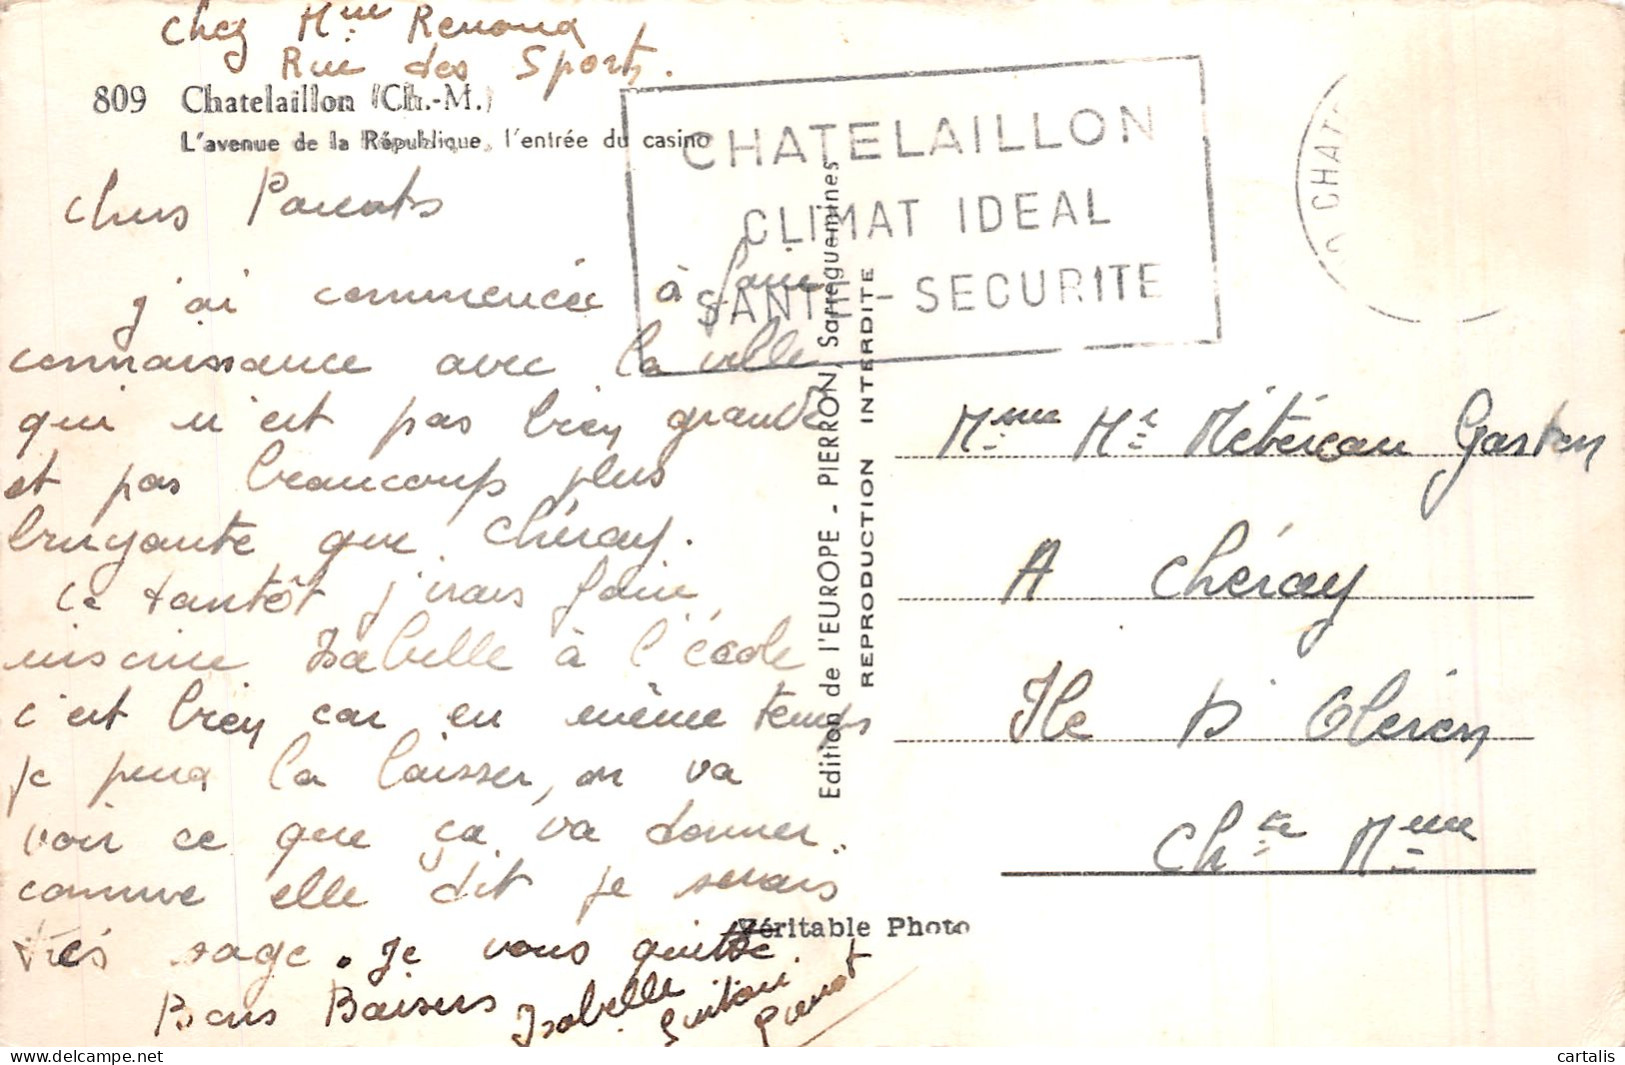 chez Mme Renoud
Rue des Sports.
809 Chatelaillon (Ch.-M.)
L'avenue de la République, l'entrée du casino
chers Parents
j'ai commencée à faire
connaissance avec la ville
qui n'est pas bien grande
et pas beaucoup plus
bruyante que chéray.
ce tantôt j'irais faire
inscrire Isabelle à l'école
c'est bien car en même temps
je peux la laisser, on va
voir ce que ça va donner..
comme elle dit je serais
très sage. Je vous quitte.
Bons Baisers Isabelle
CHATELAILLON
CLIMAT IDEAL
SANTE - SECURITE
CHAT
Edition de l'EUROPE - PIERRON, Sarreguemines
REPRODUCTION INTERDITE
Mme Mr Métereau Gaston
A chéray
Ile D' Oleron
Ch te Mme
Véritable Photo
cartalis